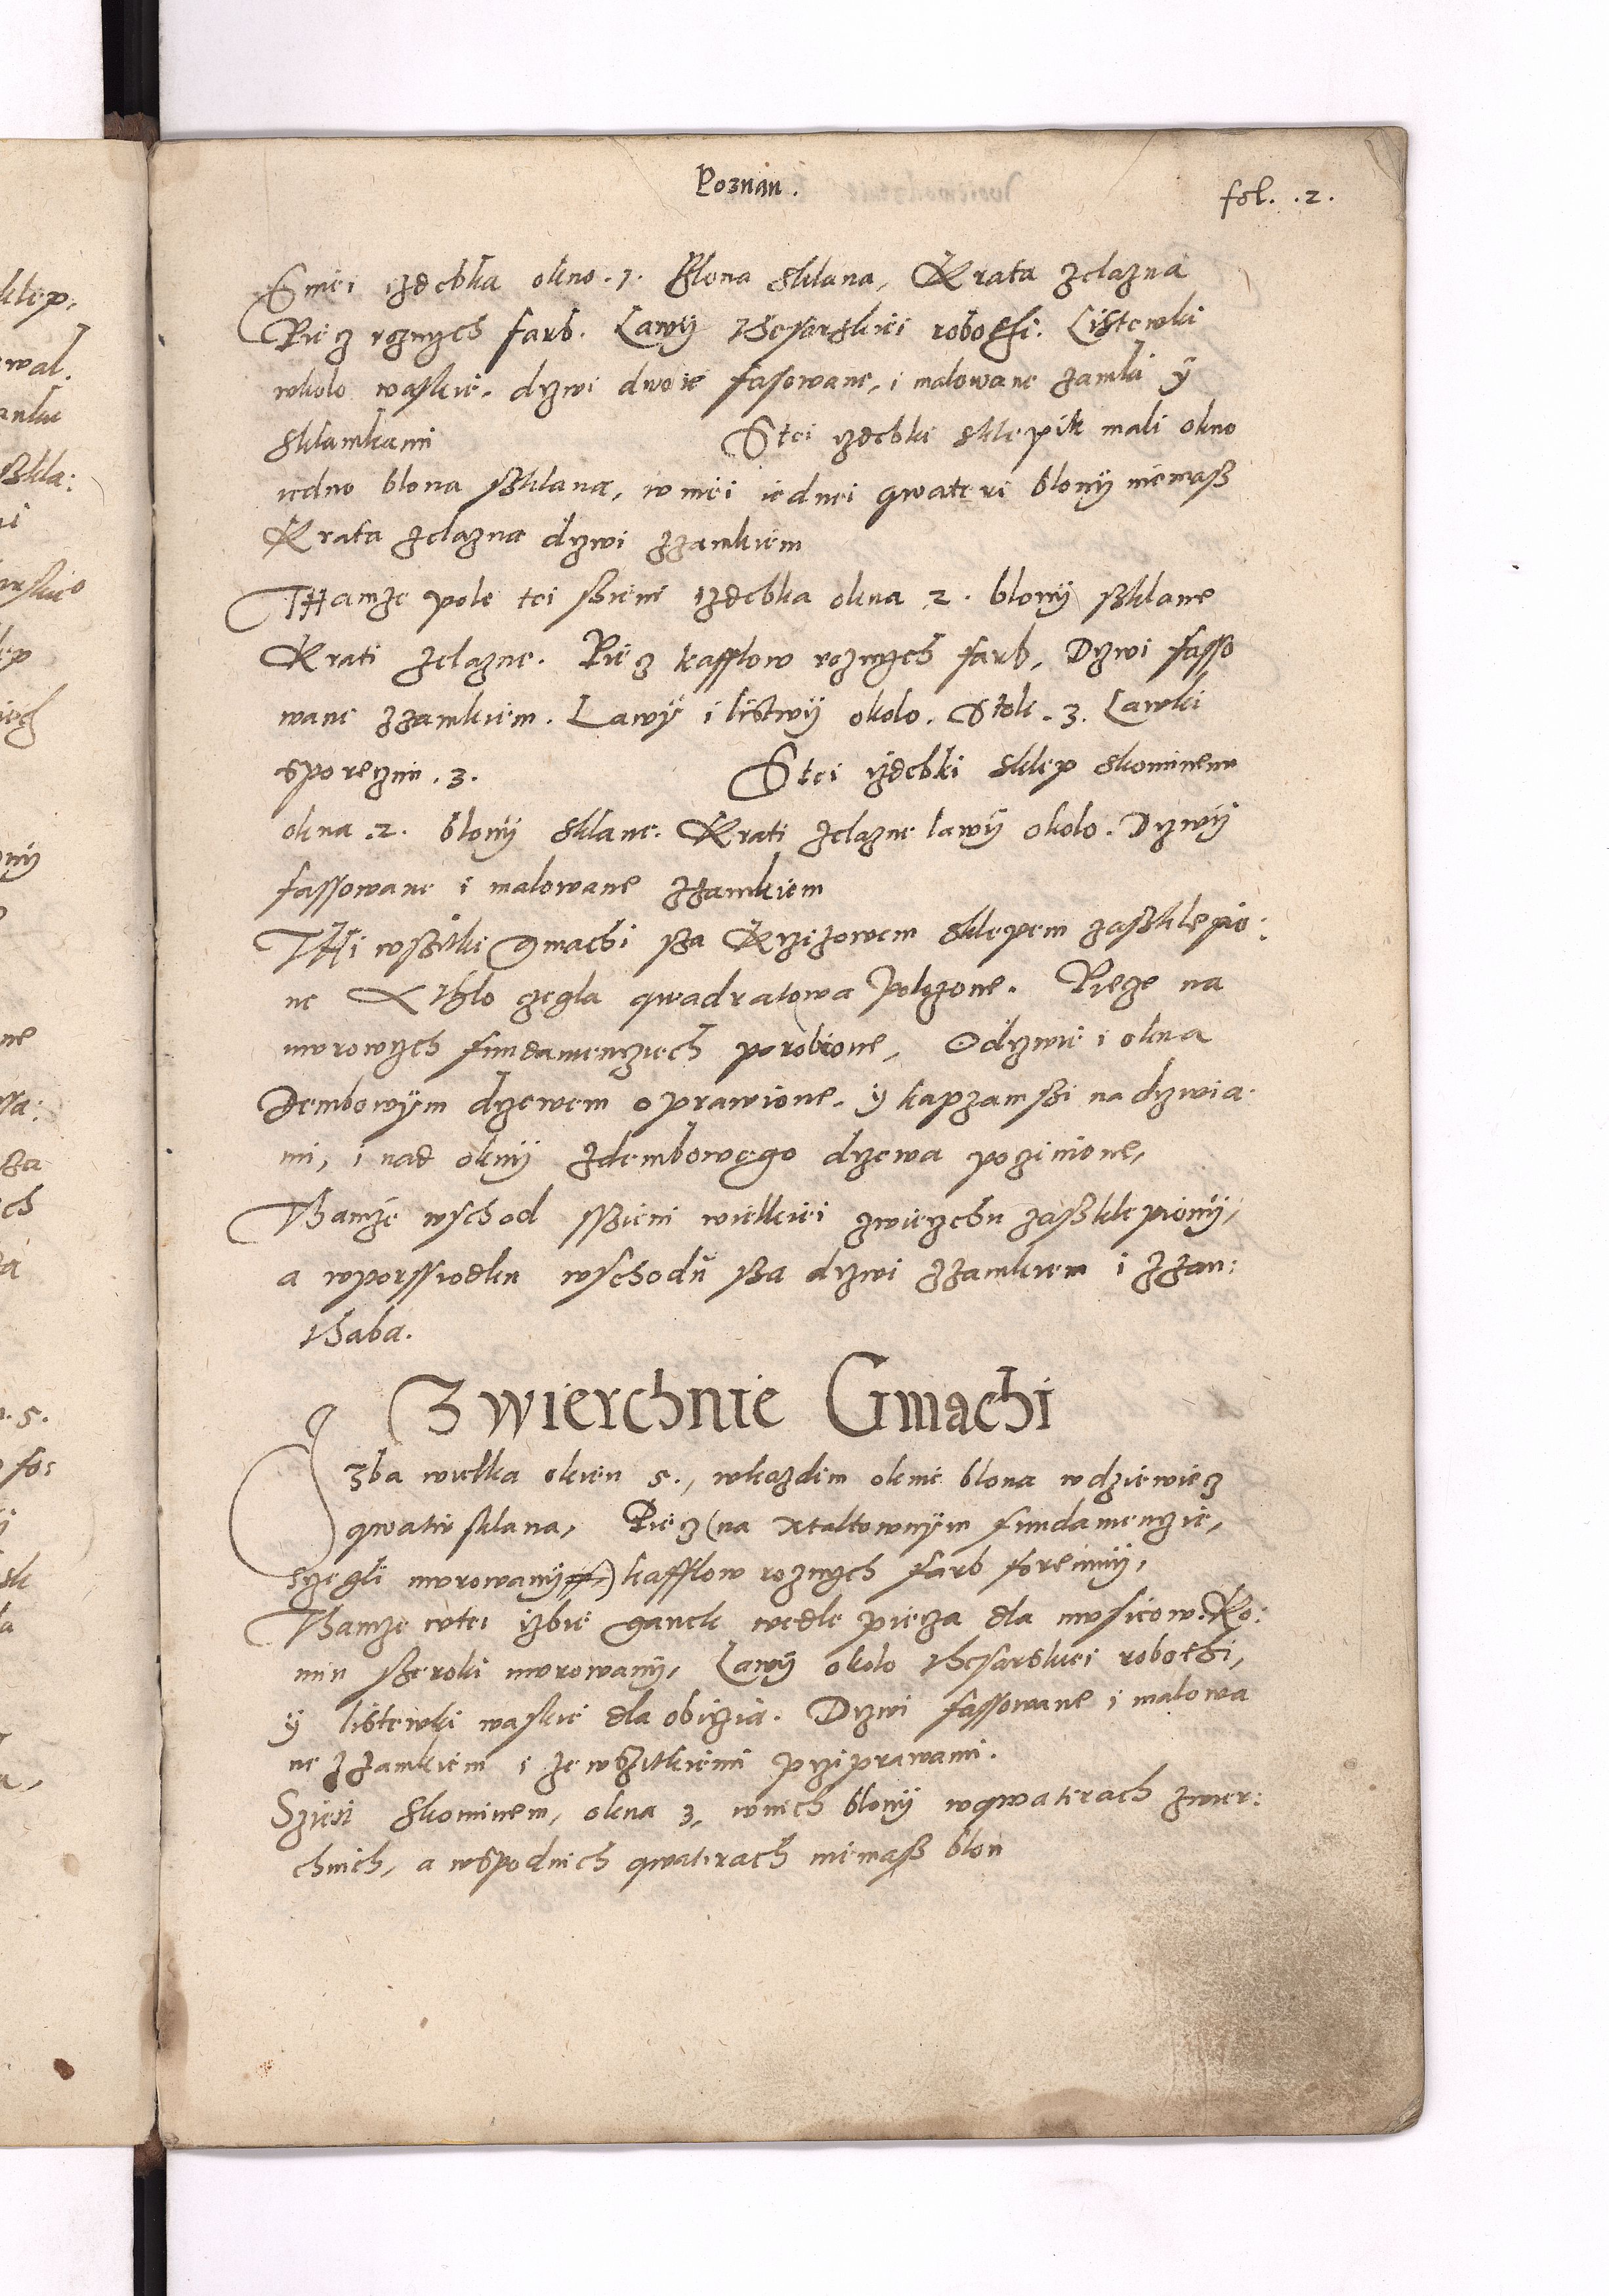 Poznan.
fol. .2.
Sniei izdebka okno .1. Blona sklana, Krata zelazna
Piecz roznych farb. Lawy Thesarskiei robothi. Listewki
wkolo waskie. drzwi dwoie fasowane, i malowane zamki ÿ
sklamkami
Stei yzdebki sklepik mali okno
iedno blona ßklana, w niei iednei qwateri blonÿ niemaß
Krata zelazna drzwi zzamkiem
THamze pole tei sieni izdebka okna 2. blonÿ ßklane
Krati zelazne. Piecz kafflow roznych farb, Drzwi fasso
wane zzamkiem. Lawÿ i listwÿ okolo. Stole .3. Lawki
sporeczmi .3.
Stei yzdebki sklep skominem
okna .2. blonÿ sklane. Krati zelazne lawÿ okolo. Drzwÿ
fassowane i malowane zzamkiem
THi wßitki gmachi ßa Krzizowem sklepem zaßklepio:
ne Thlo czegla qwadratowa Polozone. Piecze na
murowych fundamenciech porobione, Odrzwie i okna
Dembowÿm drzewem oprawione. ÿ kapzamßi nadrzwia
mi, i nad oknÿ zdembowego drzewa poczinione,
Thamze wschod ßieni wielkiei zwierzchu zaßklepionÿ,
a wporssrodku wschodŭ ßa drzwi zzamkiem i zzan:
thaba.
Zwierchnie Gmachi
Izba wielka okien 5., wkazdim oknie blona wdziewiecz
qwatir sklana, Piecz (na xtaltownÿm fundamenczie,
sczegli murowanÿ) kafflow roznych farb foremnÿ,
Thamze wtei izbie ganek wedle pieca dla musicow. Ko:
min ßeroki murowanÿ, Lawÿ okolo thesarskiei robothi,
ÿ listewki waskie dla obiczia. Drzwi fassowane i malowa
ne zzamkiem i zewßitkiemi prziprawami.
Szien skominem, okna 3, wnich blonÿ wqwatirach zwier:
chnich, a wspodnich qwatirach niemaß blon